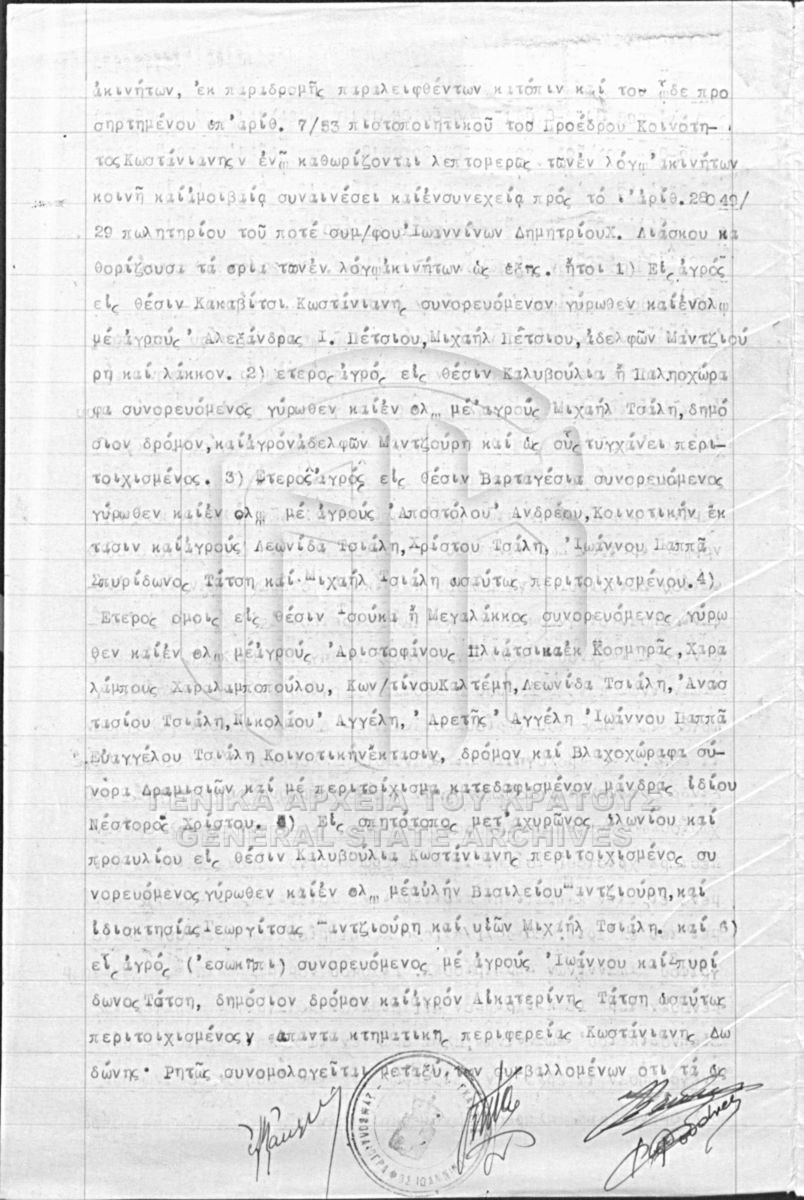 ἀκινήτων, ἐκ παραδρομῆς παραλειφθέντων κατόπιν καί του ᾧδε προ
σηρτημένου ὑπ' ἀριθ. 7/53 πιστοποιητικοῦ τοῦ Προέδρου Κοινότη-
τος Κωστίνιανης ἐνᾧ καθωρίζονται λεπτομερῶς τῶνἐν λόγῳ ἀκινήτων
κοινῇ καίἀμοιβαίᾳ συναινέσει καίἐνσυνεχείᾳ πρός τό ἀριθ. 28040/
29 πωλητηρίου τοῦ ποτέ συμ/φου Ἰωαννίνων ΔημητρίουΧ. Λιάσκου κα
θορίζουσι τά ορια τῶνἐν λόγῳἀκινήτων ὡς ἑξῆς. ἤτοι 1) Εἷς ἀγρός
εἰς θέσιν Κακαβίτσι Κωστίνιανης συνορευόμενον γύρωθεν καίἐνολῳ
μέ ἀγρούς Ἀλεξάνδρας Ι. Πέτσιου, Μιχαήλ Πέτσιου, ἀδελφῶν Μαντζιού
ρη καί λάκκον. 2) ετερος ἀγρός εἰς θέσιν Καλυβούλια ἤ Παληοχώρα
φα συνορευόμενος γύρωθεν καίἐν ολῳ μέ ἀγρούς Μιχαήλ Τσιλη, δημό
σιον δρόμον, καίἀγρόνἀδελφῶν Μαντζούρη καί ὡς οὗς τυγχάνει περι-
τοιχισμένος. 3) Ετερος ἀγρός εἰς θέσιν Βαρταγέσια συνορευόμενος
γύρωθεν καίἐν ολῳ μέ ἀγρούς Ἀποστόλου Ἀνδρέου, Κοινοτικήν ἔκ
τασιν καίἀγρούς Λεωνίδα Τσιάλη, Χρίστου Τσιλη, Ἰωάννου Παππᾶ
Σπυρίδωνος Τάτση καί Μιχαήλ Τσιάλη ωσαύτως περιτοιχισμένου. 4)
Ετερος ομοις εἰς θέσιν Τσούκα ἤ Μεγαλάκκος συνορευόμενος γύρω
θεν καίἐν ολῳ μέἀγρούς Ἀριστοφάνους Πλιάτσικα ἐκ Κοσμηρᾶς, Χαρα
λάμπους Χαραλαμποπούλου, Κων/τίνου Καλτέμη, Λεωνίδα Τσιάλη, Ἀνασ
τασίου Τσιάλη, Νικολάου Ἀγγέλη, Ἀρετῆς Ἀγγέλη Ἰωάννου Παππᾶ
Εὐαγγέλου Τσιάλη Κοινοτικήνἔκτασιν, δρόμον καί Βλαχοχώραφα σύ-
νορα Δραμισιῶν καί μέ περιτοίχισμα κατεδαφισμένον μάνδρας ἰδίου
Νέστορος Χρίστου. 5) Εἷς σπητότοπος μετ' ἀχυρῶνος ἁλωνίου καί
προαυλίου εἰς θέσιν Καλυβούλια Κωστίνιανης περιτοιχισμένος συ
νορευόμενος γύρωθεν καίἐν ολῳ μέαὐλήν Βασιλείου Μαντζιούρη, καί
ἰδιοκτησίας Γεωργίτσας Μαντζιούρη καί υἱῶν Μιχαήλ Τσιάλη. καί 6)
εἷς ἀγρός (ἐσωκῆπι) συνορευόμενος μέ ἀγρούς Ἰωάννου καί Σπυρί
δωνος Τάτση, δημόσιον δρόμον καίἀγρόν Αἰκατερίνης Τάτση ὡσαύτως
περιτοιχισμένος, απαντα κτηματικῆς περιφερείας Κωστίνιανης Δω
δώνης. Ρητῶς συνομολογεῖται μεταξύ τῶν συμβαλλομένων οτι τά ὡς
ΓΕΝΙΚΑ ΑΡΧΕΙΑ ΤΟΥ ΚΡΑΤΟΥΣ
GENERAL STATE ARCHIVES